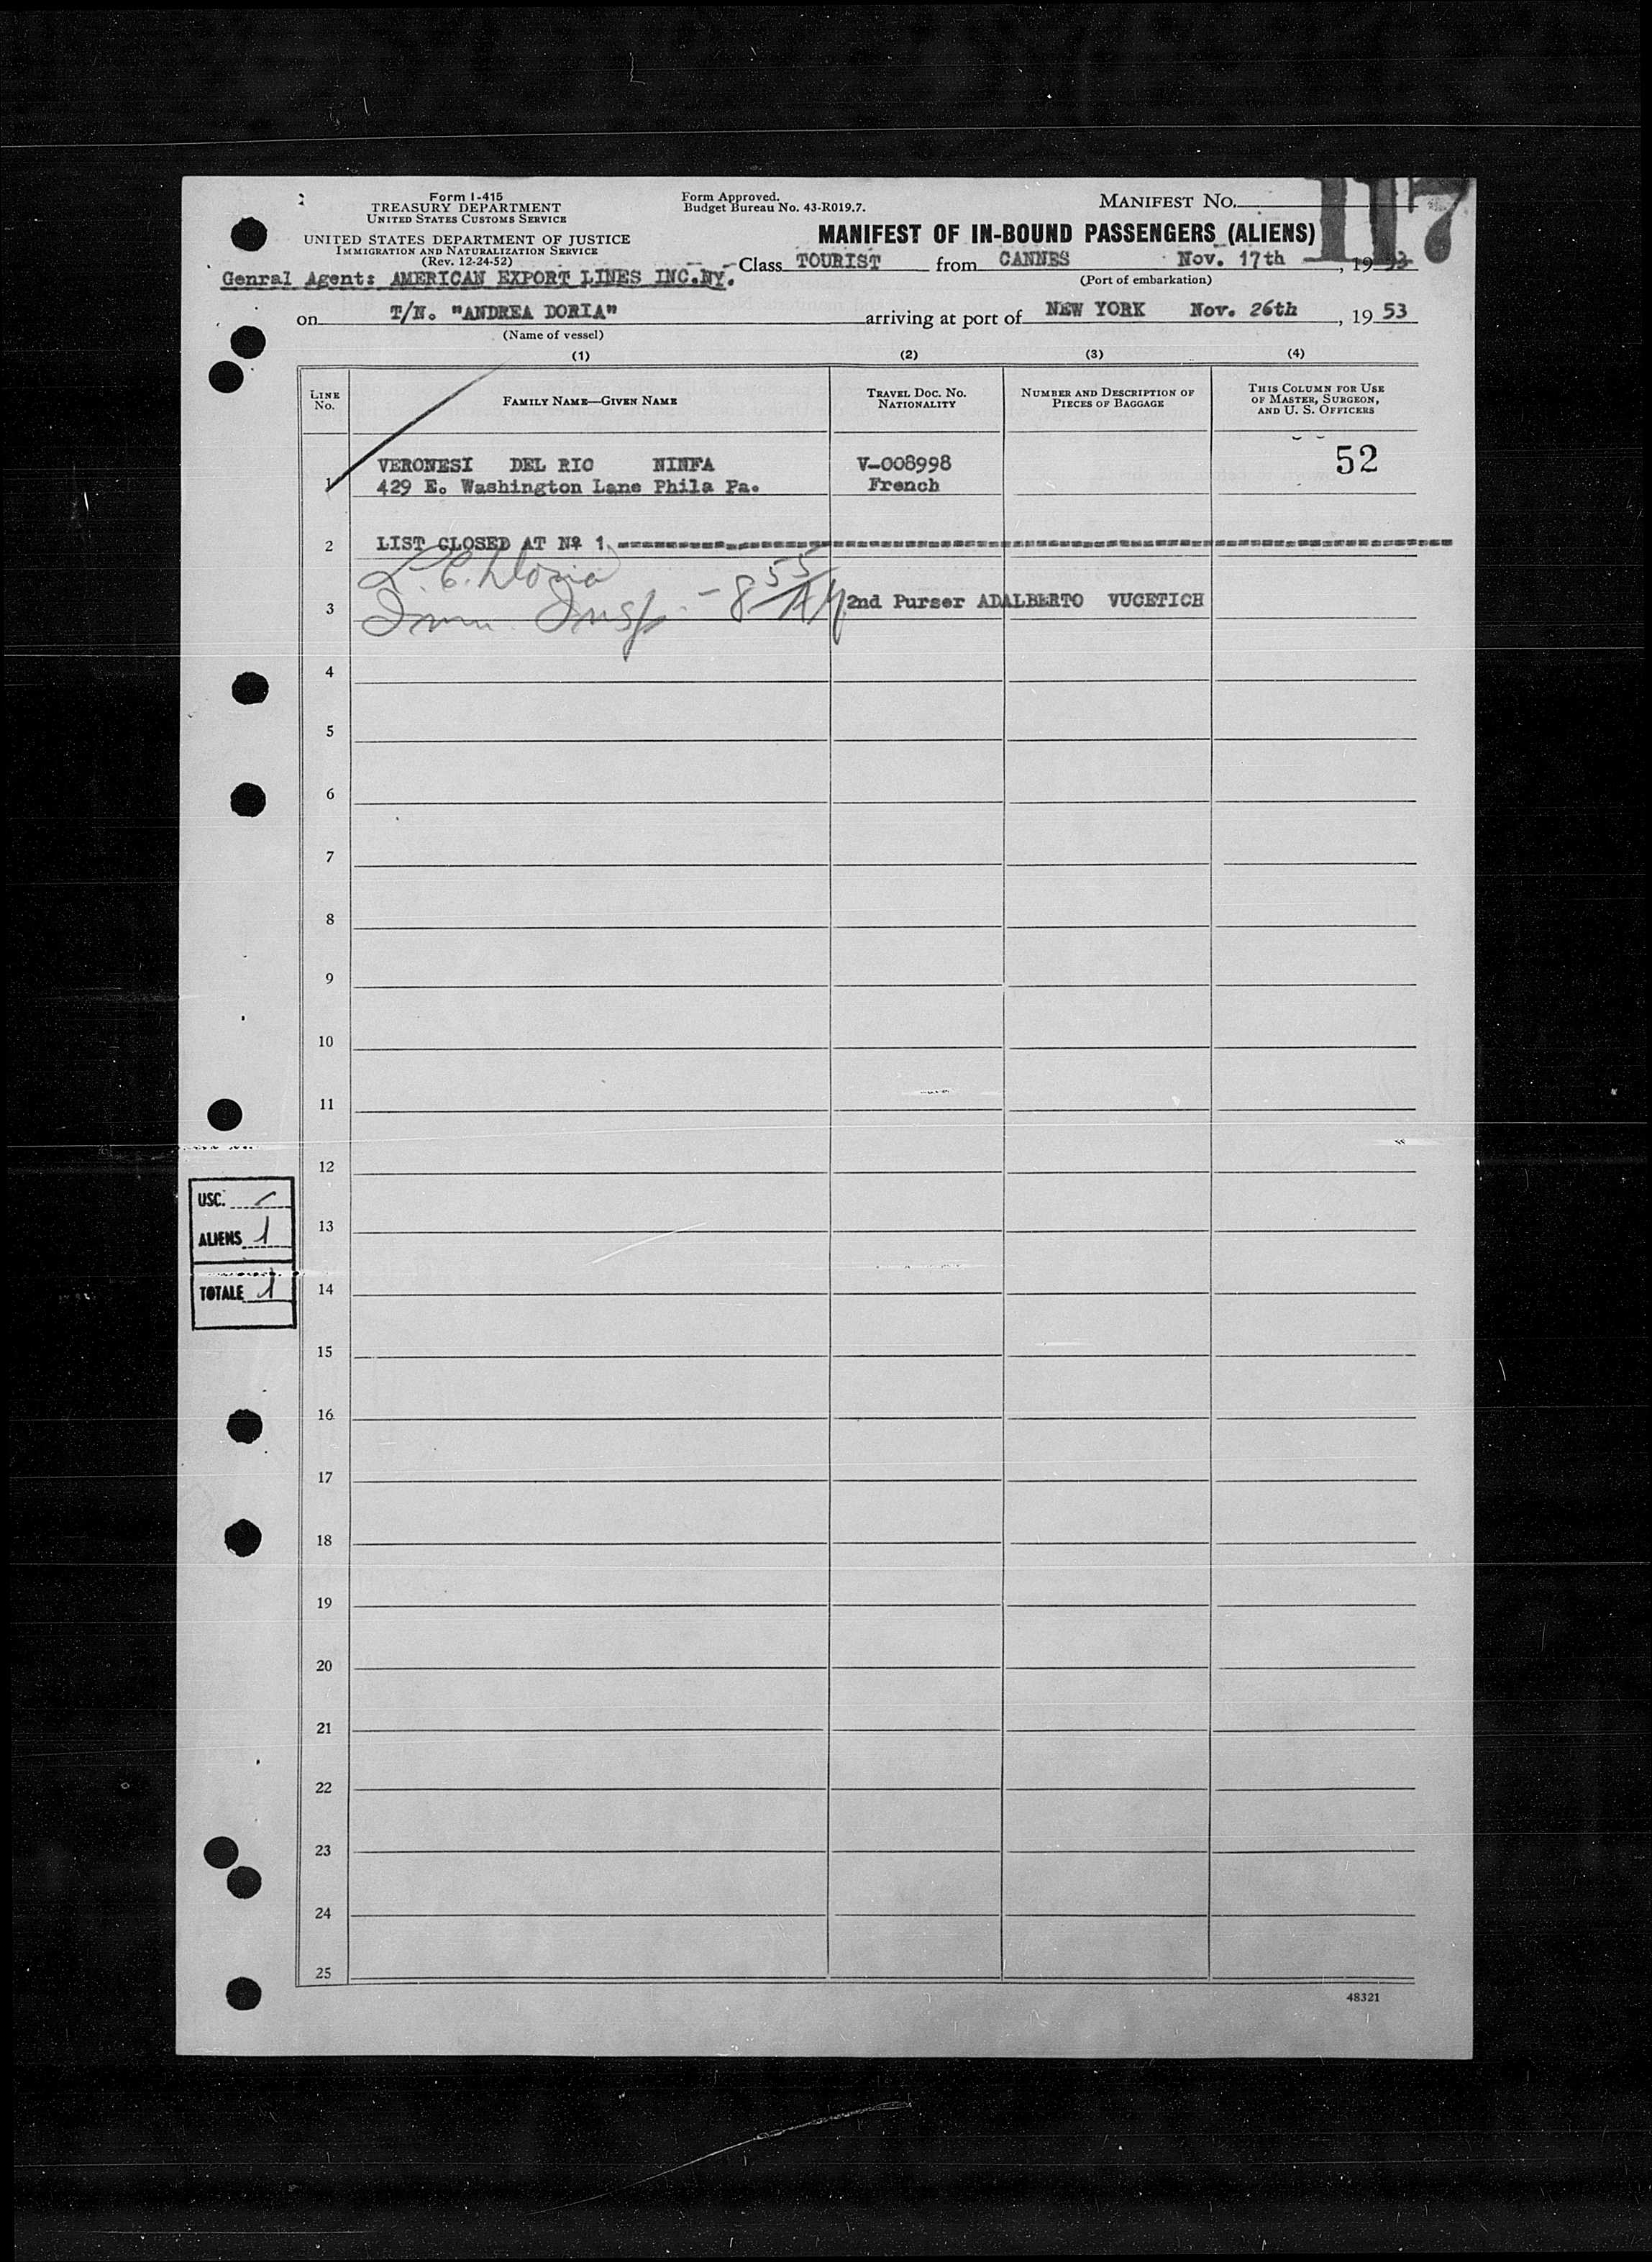 Form I-415
TREASURY DEPARTMENT
UNITED STATES CUSTOMS SERVICE
UNITED STATES DEPARTMENT OF JUSTICE
IMMIGRATION AND NATURALIZATION SERVICE
(Rev. 12-24-52)
Form Approved.
Budget Bureau No. 43-R019.7.
MANIFEST NO. 117
MANIFEST OF IN-BOUND PASSENGERS (ALIENS)
Genral Agent: AMERICAN EXPORT LINES INC.NY. Class TOURIST from CANNES Nov. 17th, 1953
(Port of embarkation)
on T/N. "ANDREA DORIA" arriving at port of NEW YORK Nov. 26th, 19 53
(Name of vessel)
(1) (2) (3) (4)
LINE NO. FAMILY NAME—GIVEN NAME TRAVEL DOC. NO. NATIONALITY NUMBER AND DESCRIPTION OF PIECES OF BAGGAGE THIS COLUMN FOR USE OF MASTER, SURGEON, AND U. S. OFFICERS
VERONESI DEL RIO NINFA V-008998 52
1 429 E. Washington Lane Phila Pa. French
2 LIST CLOSED AT Nº 1
Imm. Insp. - 8 55/AM
3 2nd Purser ADALBERTO VUCETICH
4
5
6
7
8
9
10
11
12
USC.
13
ALIENS 1
14
TOTALE 1
15
16
17
18
19
20
21
22
23
24
25
48321